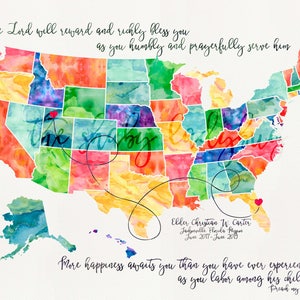 Lord will reward and richly bless you
as you humbly and prayerfully serve him
Elder Christian W. Carter
Jacksonville Florida Mission
June 2017-June 2019
More happiness awaits you than you have ever experien
as you labor among his chil
Preach my